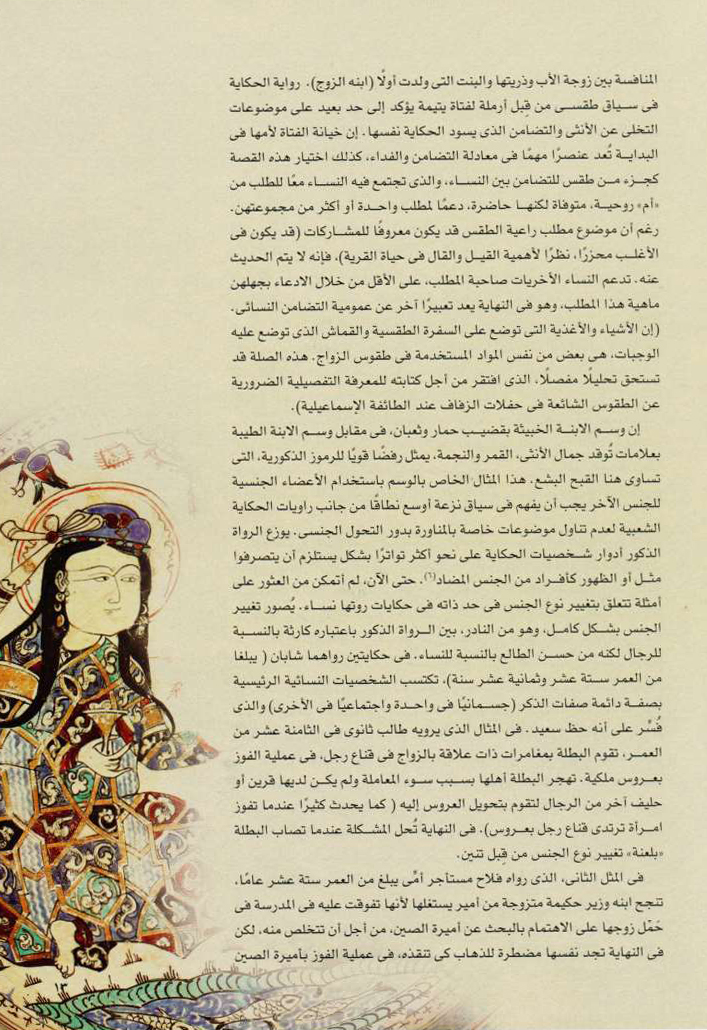 المنافسة بين زوجة الأب وذريتها والبنت التى ولدت أولًا (ابنه الزوج). رواية الحكاية
فى سياق طقسى من قِبل أرملة لفتاة يتيمة يؤكد إلى حد بعيد على موضوعات
التخلى عن الأنثى والتضامن الذى يسود الحكاية نفسها. إن خيانة الفتاة لأمها فى
البداية تُعد عنصرًا مهمًا فى معادلة التضامن والفداء، كذلك اختيار هذه القصة
كجزء من طقس للتضامن بين النساء، والذى تجتمع فيه النساء معًا للطلب من
«أم» روحية، متوفاة لكنها حاضرة، دعمًا لمطلب واحدة أو أكثر من مجموعتهن.
رغم أن موضوع مطلب راعية الطقس قد يكون معروفًا للمشاركات (قد يكون فى
الأغلب محزرًا، نظرًا لأهمية القيل والقال فى حياة القرية)، فإنه لا يتم الحديث
عنه. تدعم النساء الأخريات صاحبة المطلب، على الأقل من خلال الادعاء بجهلهن
ماهية هذا المطلب، وهو فى النهاية يعد تعبيرًا آخر عن عمومية التضامن النسائى.
(إن الأشياء والأغذية التى توضع على السفرة الطقسية والقماش الذى توضع عليه
الوجبات، هى بعض من نفس المواد المستخدمة فى طقوس الزواج. هذه الصلة قد
تستحق تحليلًا مفصلًا، الذى افتقر من أجل كتابته للمعرفة التفصيلية الضرورية
عن الطقوس الشائعة فى حفلات الزفاف عند الطائفة الإسماعيلية).
إن وسم الابنة الخبيثة بقضيب حمار وثعبان، فى مقابل وسم الابنة الطيبة
بعلامات تُوقد جمال الأنثى، القمر والنجمة، يمثل رفضًا قويًا للرموز الذكورية، التى
تساوى هنا القبح البشع. هذا المثال الخاص بالوسم باستخدام الأعضاء الجنسية
للجنس الآخر يجب أن يفهم فى سياق نزعة أوسع نطاقًا من جانب راويات الحكاية
الشعبية لعدم تناول موضوعات خاصة بالمناورة بدور التحول الجنسى. يوزع الرواة
الذكور أدوار شخصيات الحكاية على نحو أكثر تواترًا بشكل يستلزم أن يتصرفوا
مثل أو الظهور كأفراد من الجنس المضاد(٦). حتى الآن، لم أتمكن من العثور على
أمثلة تتعلق بتغيير نوع الجنس فى حد ذاته فى حكايات روتها نساء. يُصور تغيير
الجنس بشكل كامل، وهو من النادر، بين الرواة الذكور باعتباره كارثة بالنسبة
للرجال لكنه من حسن الطالع بالنسبة للنساء. فى حكايتين رواهما شابان ( يبلغا
من العمر ستة عشر وثمانية عشر سنة)، تكتسب الشخصيات النسائية الرئيسية
بصفة دائمة صفات الذكر (جسمانيًا فى واحدة واجتماعيًا فى الأخرى) والذى
فُسِّر على أنه حظ سعيد. فى المثال الذى يرويه طالب ثانوى فى الثامنة عشر من
العمر، تقوم البطلة بمغامرات ذات علاقة بالزواج فى قناع رجل، فى عملية الفوز
بعروس ملكية. تهجر البطلة أهلها بسبب سوء المعاملة ولم يكن لديها قرين أو
حليف آخر من الرجال لتقوم بتحويل العروس إليه ( كما يحدث كثيرًا عندما تفوز
امرأة ترتدى قناع رجل بعروس). فى النهاية تُحل المشكلة عندما تصاب البطلة
«بلعنة» تغيير نوع الجنس من قِبل تنين.
فى المثل الثانى، الذى رواه فلاح مستأجر أمِّى يبلغ من العمر ستة عشر عامًا،
تنجح ابنه وزير حكيمة متزوجة من أمير يستغلها لأنها تفوقت عليه فى المدرسة فى
حَمْل زوجها على الاهتمام بالبحث عن أميرة الصين، من أجل أن تتخلص منه، لكن
فى النهاية تجد نفسها مضطرة للذهاب كى تنقذه، فى عملية الفوز بأميرة الصين
١٣